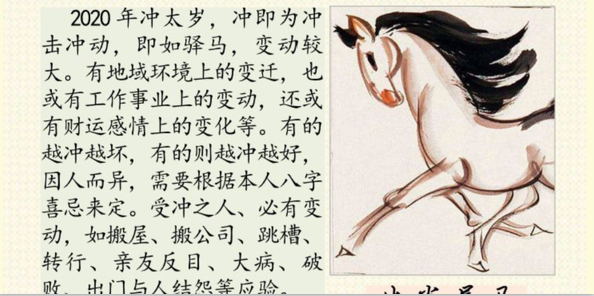 2020年冲太岁，冲即为冲
击冲动，即如驿马，变动较
大。有地域环境上的变迁，也
或有工作事业上的变动，还或
有财运感情上的变化等。有的
越冲越坏，有的则越冲越好，
因人而异，需要根据本人八字
喜忌来定。受冲之人、必有变
动，如搬屋、搬公司、跳槽、
转行、亲友反目、大病、破
败、出门与人结怨等应验。